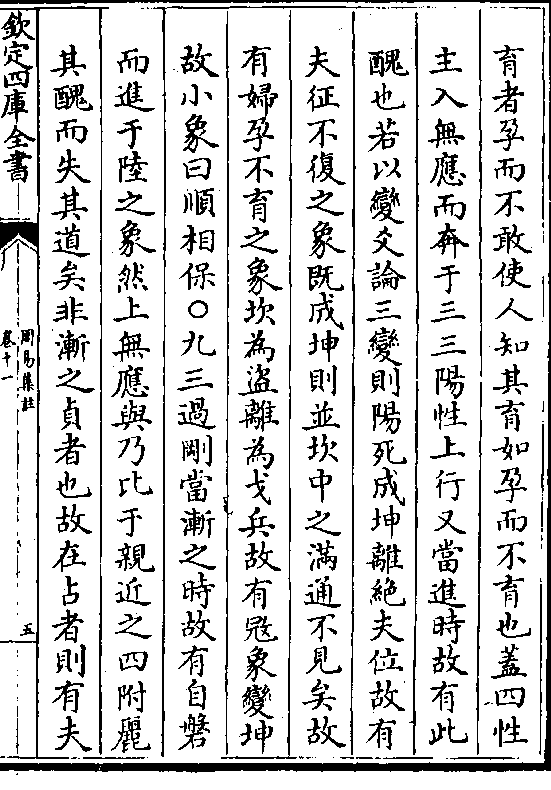 育者孕而不敢使人知其育如孕而不育也蓋四性
主入無應而奔于三三陽性上行又當進時故有此
醜也若以變爻論三變則陽死成坤離絶夫位故有
夫征不復之象既成坤則並坎中之滿通不見矣故
有婦孕不育之象坎為盜離為戈兵故有宼象變坤
故小象曰順相保○九三過剛當漸之時故有自磐
而進于陸之象然上無應與乃比于親近之四附麗
其醜而失其道矣非漸之貞者也故在占者則有夫
欽定四庫全書
周易集註
卷十一
五